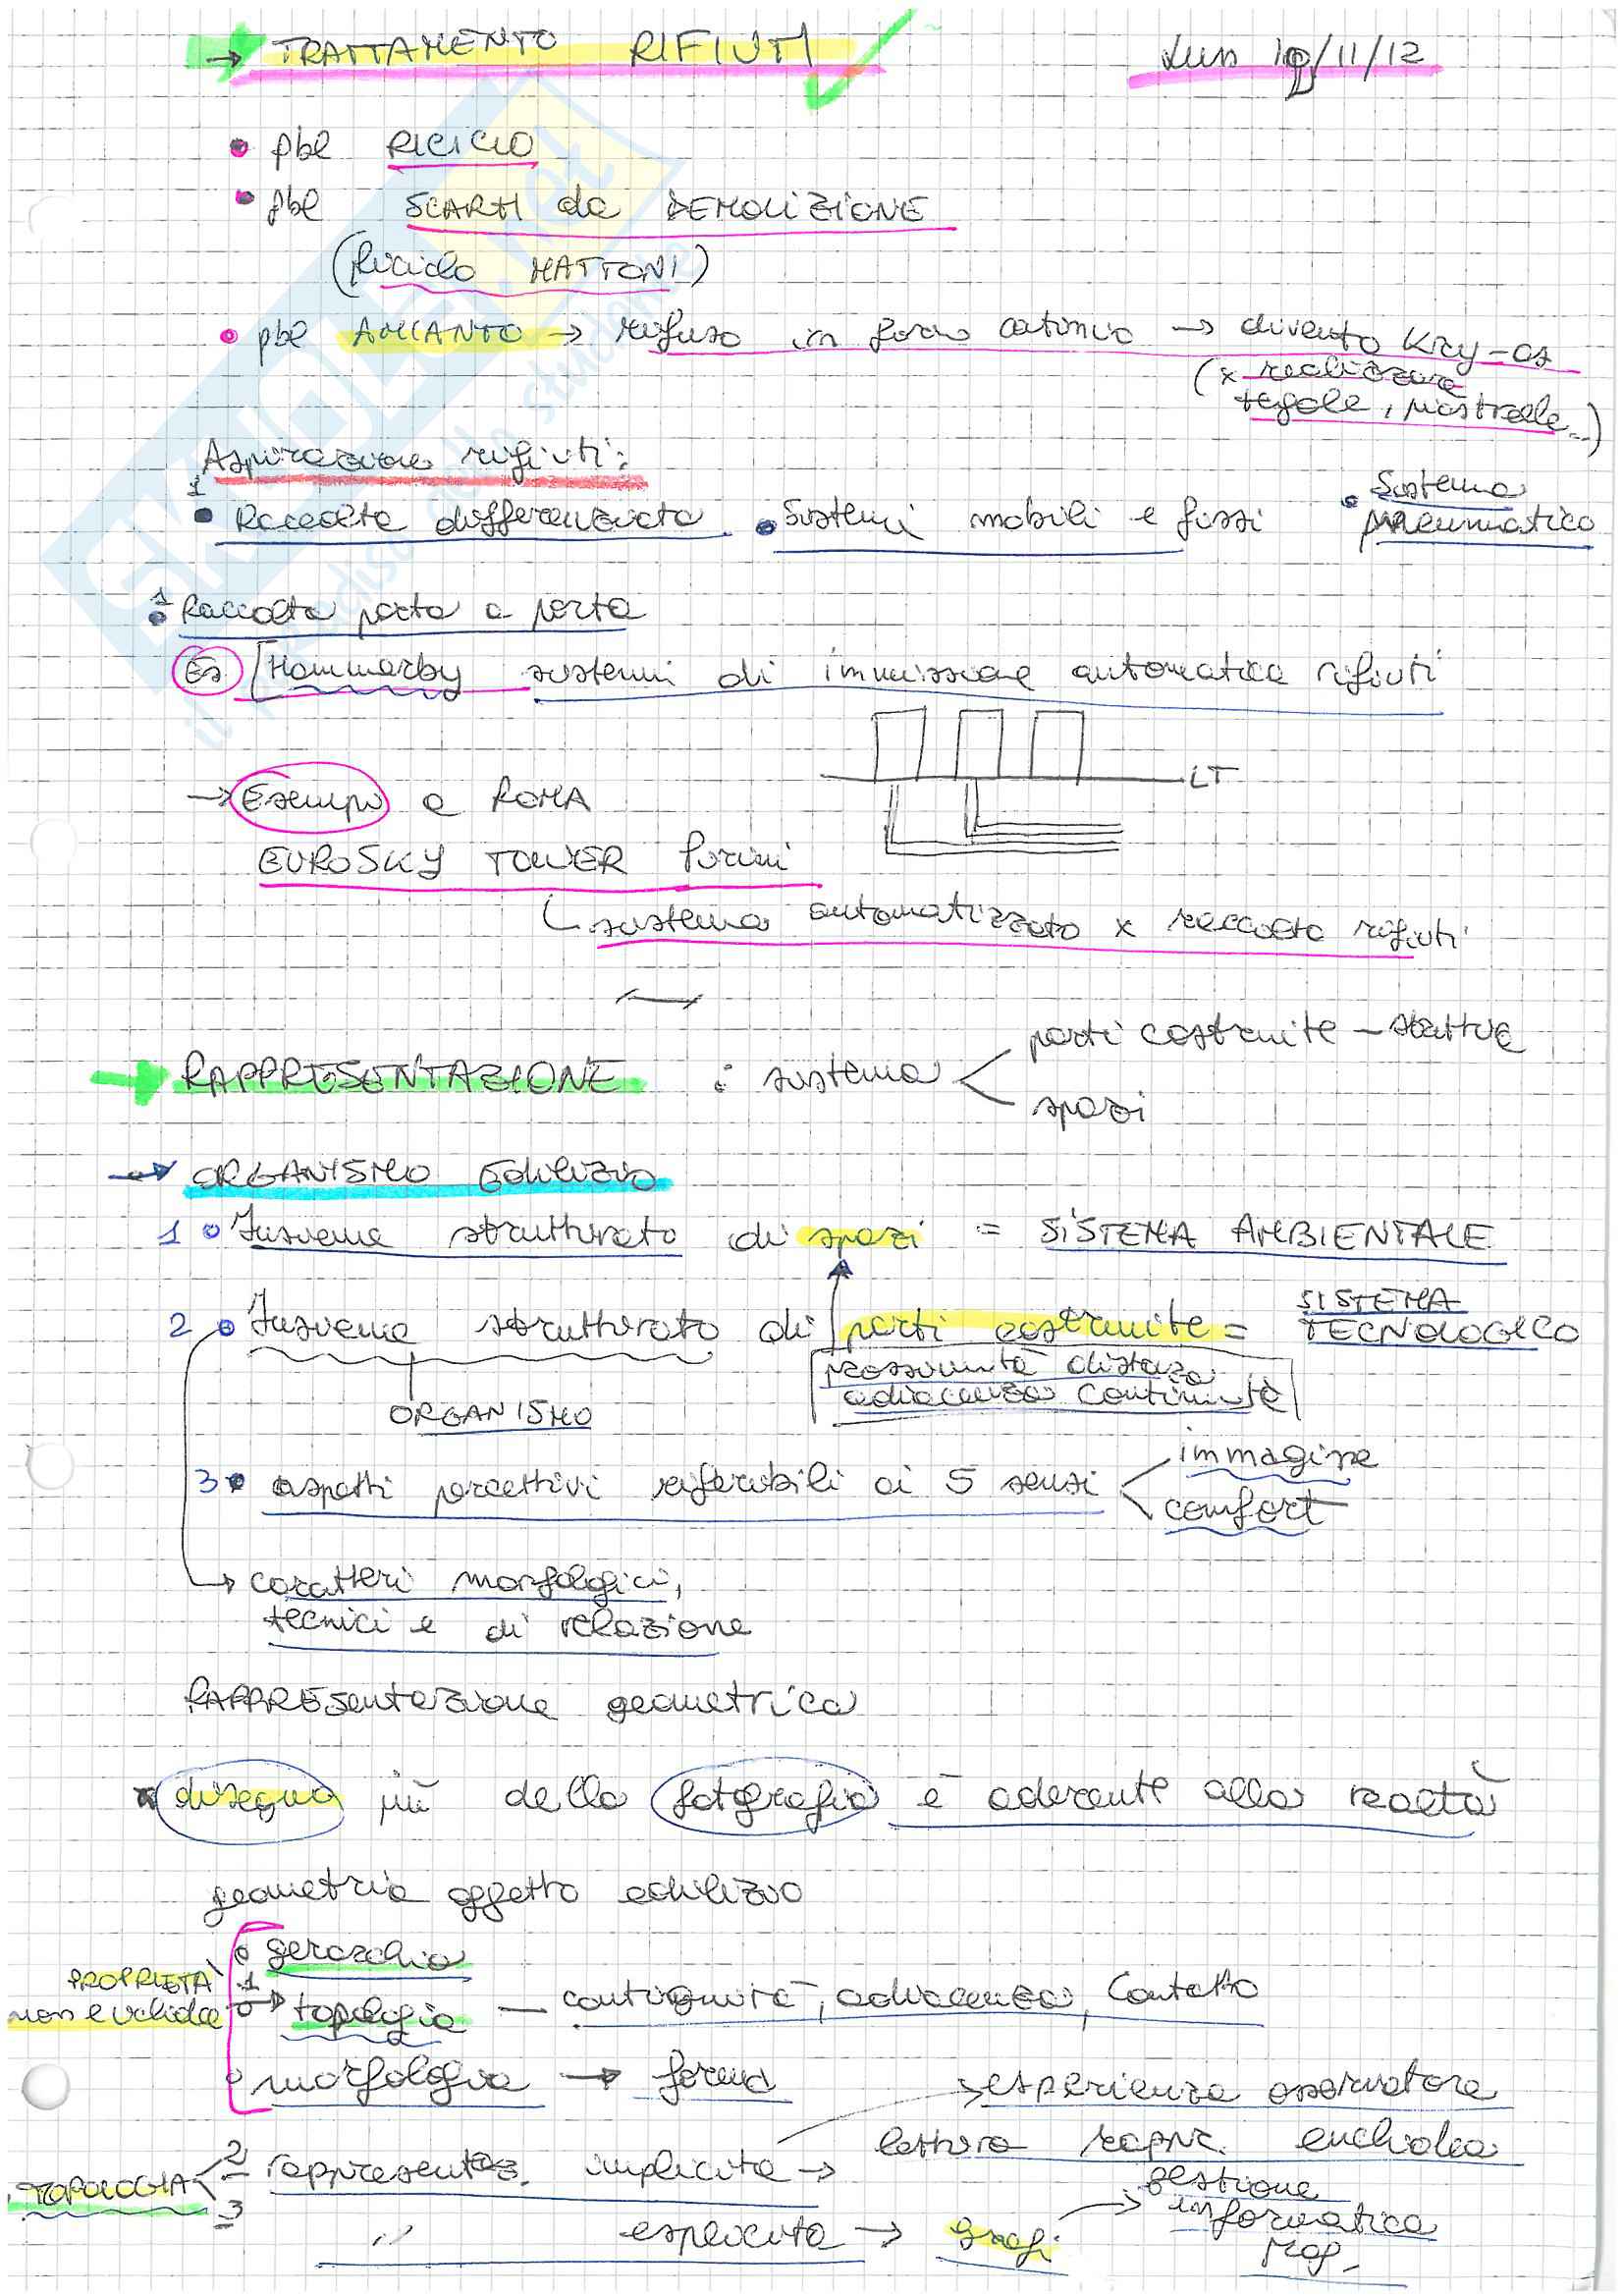 → TRATTAMENTO RIFIUTI
Lun 19/11/12
• pbl RICICLO
• pbl SCARTI da DEMOLIZIONE
(Riciclo MATTONI)
• pbl AMIANTO → rifuso in forno → diventa Kry-as
(x realizzare
tegole, piastrelle..)
Aspirazione rifiuti:
1 • Raccolta differenziata • Sistemi mobili e fissi • Sistema
pneumatico
1 • Raccolta porta a porta
Es Hammarby sistemi di immissione automatica rifiuti
LT
→ Esempio a ROMA
EUROSKY TOWER Purini
sistema automatizzato x raccolta rifiuti
→ RAPPRESENTAZIONE : sistema
parti costruite -
spazi
→ ORGANISMO EDILIZIO
1 • Insieme strutturato di spazi = SISTEMA AMBIENTALE
2 • Insieme strutturato di parti costruite = SISTEMA
TECNOLOGICO
prossimità distanza
adiacenza continuità
ORGANISMO
3 • aspetti percettivi riferibili ai 5 sensi
immagine
comfort
→ caratteri morfologici,
tecnici e di relazione
RAPPRESentazione geometrica
disegno più della fotografia è aderente alla realtà
geometria oggetto edilizio
PROPRIETA'
non euclidee
gerarchia
1 → topologia — contiguità, adiacenza, Contatto
morfologia → forma
→ esperienza osservatore
TOPOLOGIA
2 - rappresentaz. implicita → lettura rappr. euclidea
3 - " esplicita → grafi
→ gestione
informatica